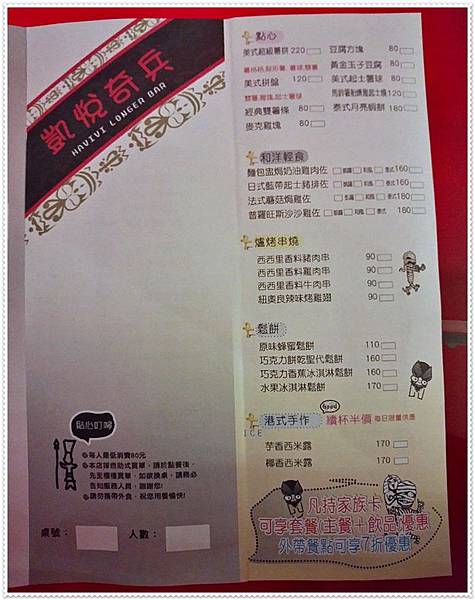 凱悅奇兵
HAVIVI LONGER BAR
貼心叮嚀
每人最低消費80元
本店採自助式買單，請於點餐後，
先至櫃檯買單，如欲換桌，請務必
告知服務人員，謝謝您！
請勿攜帶外食，祝您用餐愉快！
桌號： 人數：
點心
美式超級薯餅 220 豆腐方塊 80
黃金玉子豆腐 80
美式拼盤 120 美式起士薯球 80
180
經典雙薯條 80 泰式月亮蝦餅 180
麥克雞塊 80
和洋輕食
麵包盅焗奶油雞肉佐 160
日式藍帶起士豬排佐 160
法式蘑菇焗雞佐 180
普羅旺斯沙沙雞佐 180
爐烤串燒
西西里香料豬肉串 90
西西里香料雞肉串 90
西西里香料牛肉串 90
紐奧良辣味烤雞翅 90
鬆餅
原味蜂蜜鬆餅 110
巧克力餅乾聖代鬆餅 160
巧克力香蕉冰淇淋鬆餅 160
水果冰淇淋鬆餅 170
good
港式手作 續杯半價 每日限量供應
ICE
芋香西米露 170
椰香西米露 170
凡持家族卡
可享套餐(主餐+飲品)優惠
外帶餐點可享7折優惠